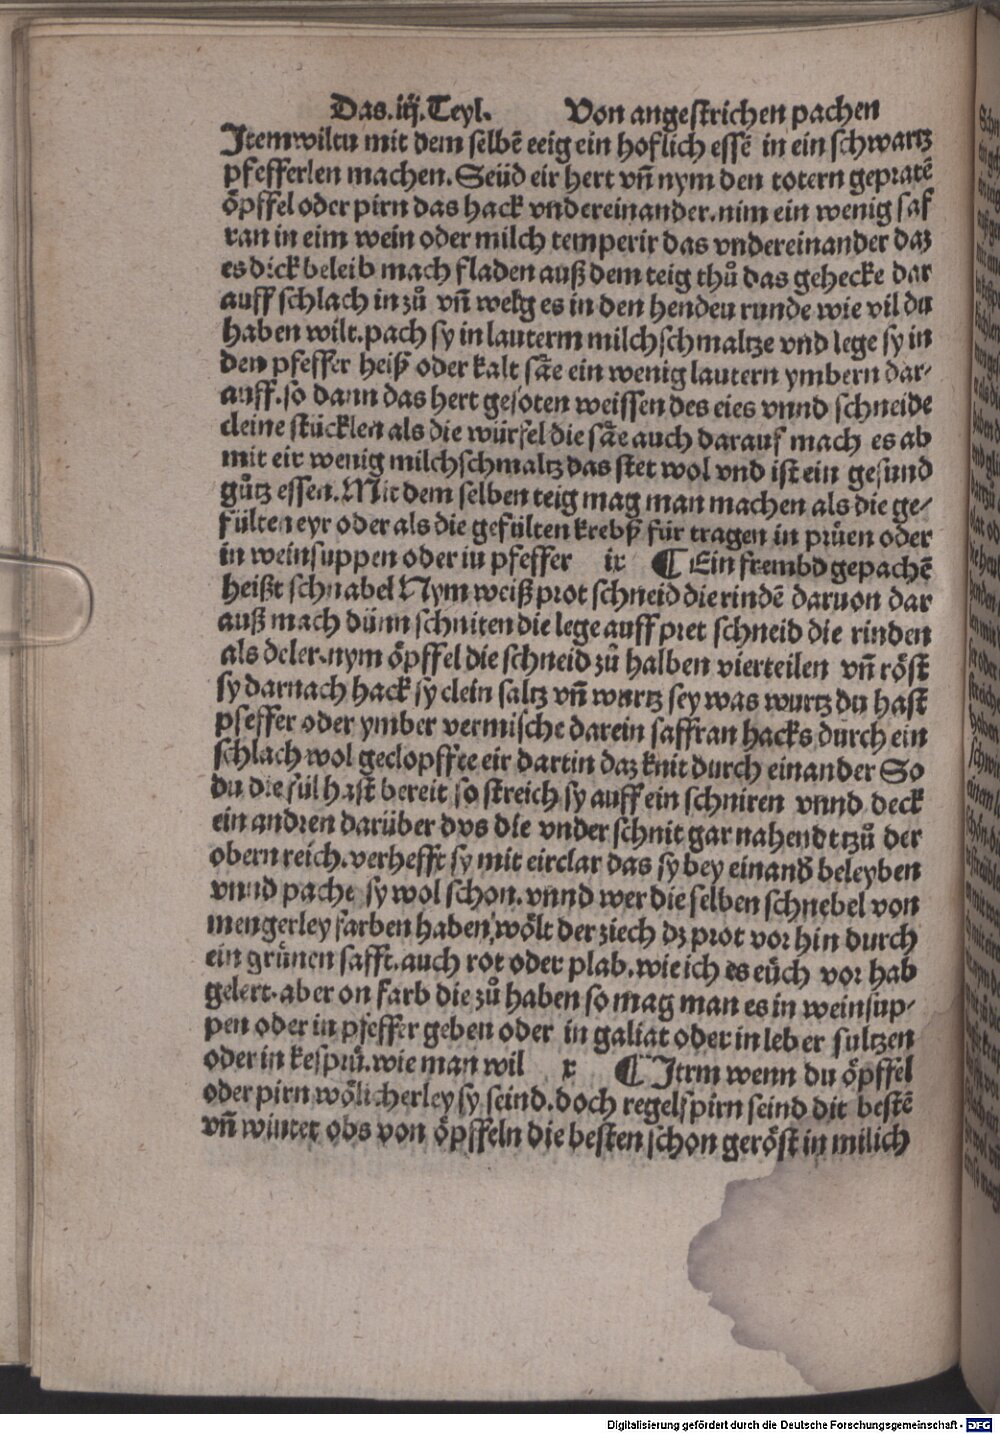 Das .iij. Teyl. Von angestrichen pachen
Item wiltu mit dem selbē teig ein hoflich essē in ein schwartz
pfefferlen machen. Seüd eir hert vñ nym den totern gepratē
öpffel oder pirn das hack vndereinander. nim ein wenig saf
ran in eim wein oder milch temperir das vndereinander daz
es dick beleib mach fladen auß dem teig thů das gehecke dar
auff schlach in zů vñ welg es in den hendeu runde wie vil du
haben wilt. pach sy in lauterm milchschmaltze vnd lege sy in
den pfeffer heiß oder kalt sāe ein wenig lautern ymbern dar-
auff. so dann das hert gesoten weissen des eies vnnd schneide
cleine stücklen als die würfel die sāe auch darauf mach es ab
mit eir wenig milchschmaltz das stet wol vnd ist ein gesund
gůtz essen. Mit dem selben teig mag man machen als die ge-
fülten eyr oder als die gefülten krebß für tragen in prüen oder
in weinsuppen oder iu pfeffer ix ¶ Ein frembd gepachē
heißt schnabel Nym weiß prot schneid die rindē daruon dar
auß mach dünn schniten die lege auff pret schneid die rinden
als deler. nym öpffel die schneid zů halben vierteilen vñ röst
sy darnach hack sy clein saltz vñ wurtz sey was wurtz du hast
pfeffer oder ymber vermische darein saffran hacks durch ein
schlach wol geclopffte eir dartin daz knit durch einander So
du die fül hast bereit so streich sy auff ein schniren vnnd deck
ein andren darüber dvs die vnder schnit gar nahend tzů der
obern reich. verhefft sy mit eirclar das sy bey einand beleyben
vnnd pache sy wol schon. vnnd wer die selben schnebel von
mengerley farben haben wölt der ziech dz prot vor hin durch
ein grünen safft. auch rot oder plab. wie ich es eüch vor hab
gelert. aber on farb die zů haben so mag man es in weinsup-
pen oder in pfeffer geben oder in galiat oder in leber sultzen
oder in kesprü. wie man wil x ¶ Itrm wenn du öpffel
oder pirn wölicherley sy seind. doch regelspirn seind dit bestē
vñ winter obs von öpffeln die besten schon geröst in milich
Digitalisierung gefördert durch die Deutsche Forschungsgemeinschaft - DFG